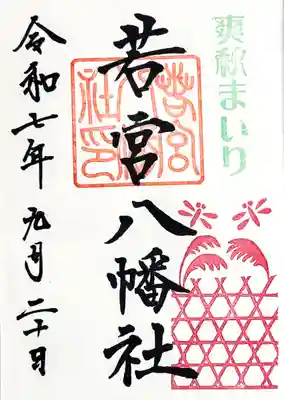 爽秋まいり
若宮八幡社
若宮
八幡
社印
令和七年九月二十日